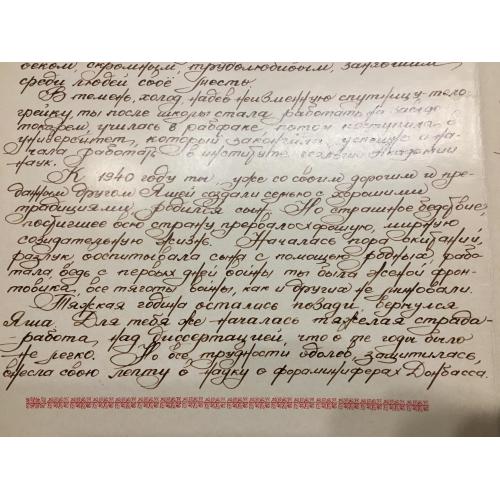 веком, скромным, трудолюбивым, занявшим
среди людей своё место.
В темень, холод, надев неизменную спутницу-тело-
грейку, ты после школы стала работать на заводе
токарем, училась в рабфаке, потом поступила в
университет, который закончила успешно и на-
чала работать в институте геологии Академии
наук.
К 1940 году ты, уже со своим дорогим и пре-
данным другом Яшей создали семью с хорошими
традициями, родился сын. Но страшное бедствие,
постигшее всю страну прервало хорошую, мирную
созидательную жизнь. Началась пора ожиданий,
разлук, воспитывала сына с помощью родных, рабо-
тала, ведь с первых дней войны ты была женой фрон-
товика, все тяготы войны, как и других не миновали.
Тяжкая година осталась позади, вернулся
Яша. Для тебя же началась тяжёлая страда-
работа над диссертацией, что в те годы было
не легко. Но все трудности одолев, защитилась,
внесла свою лепту в науку о фораминиферах Донбасса.